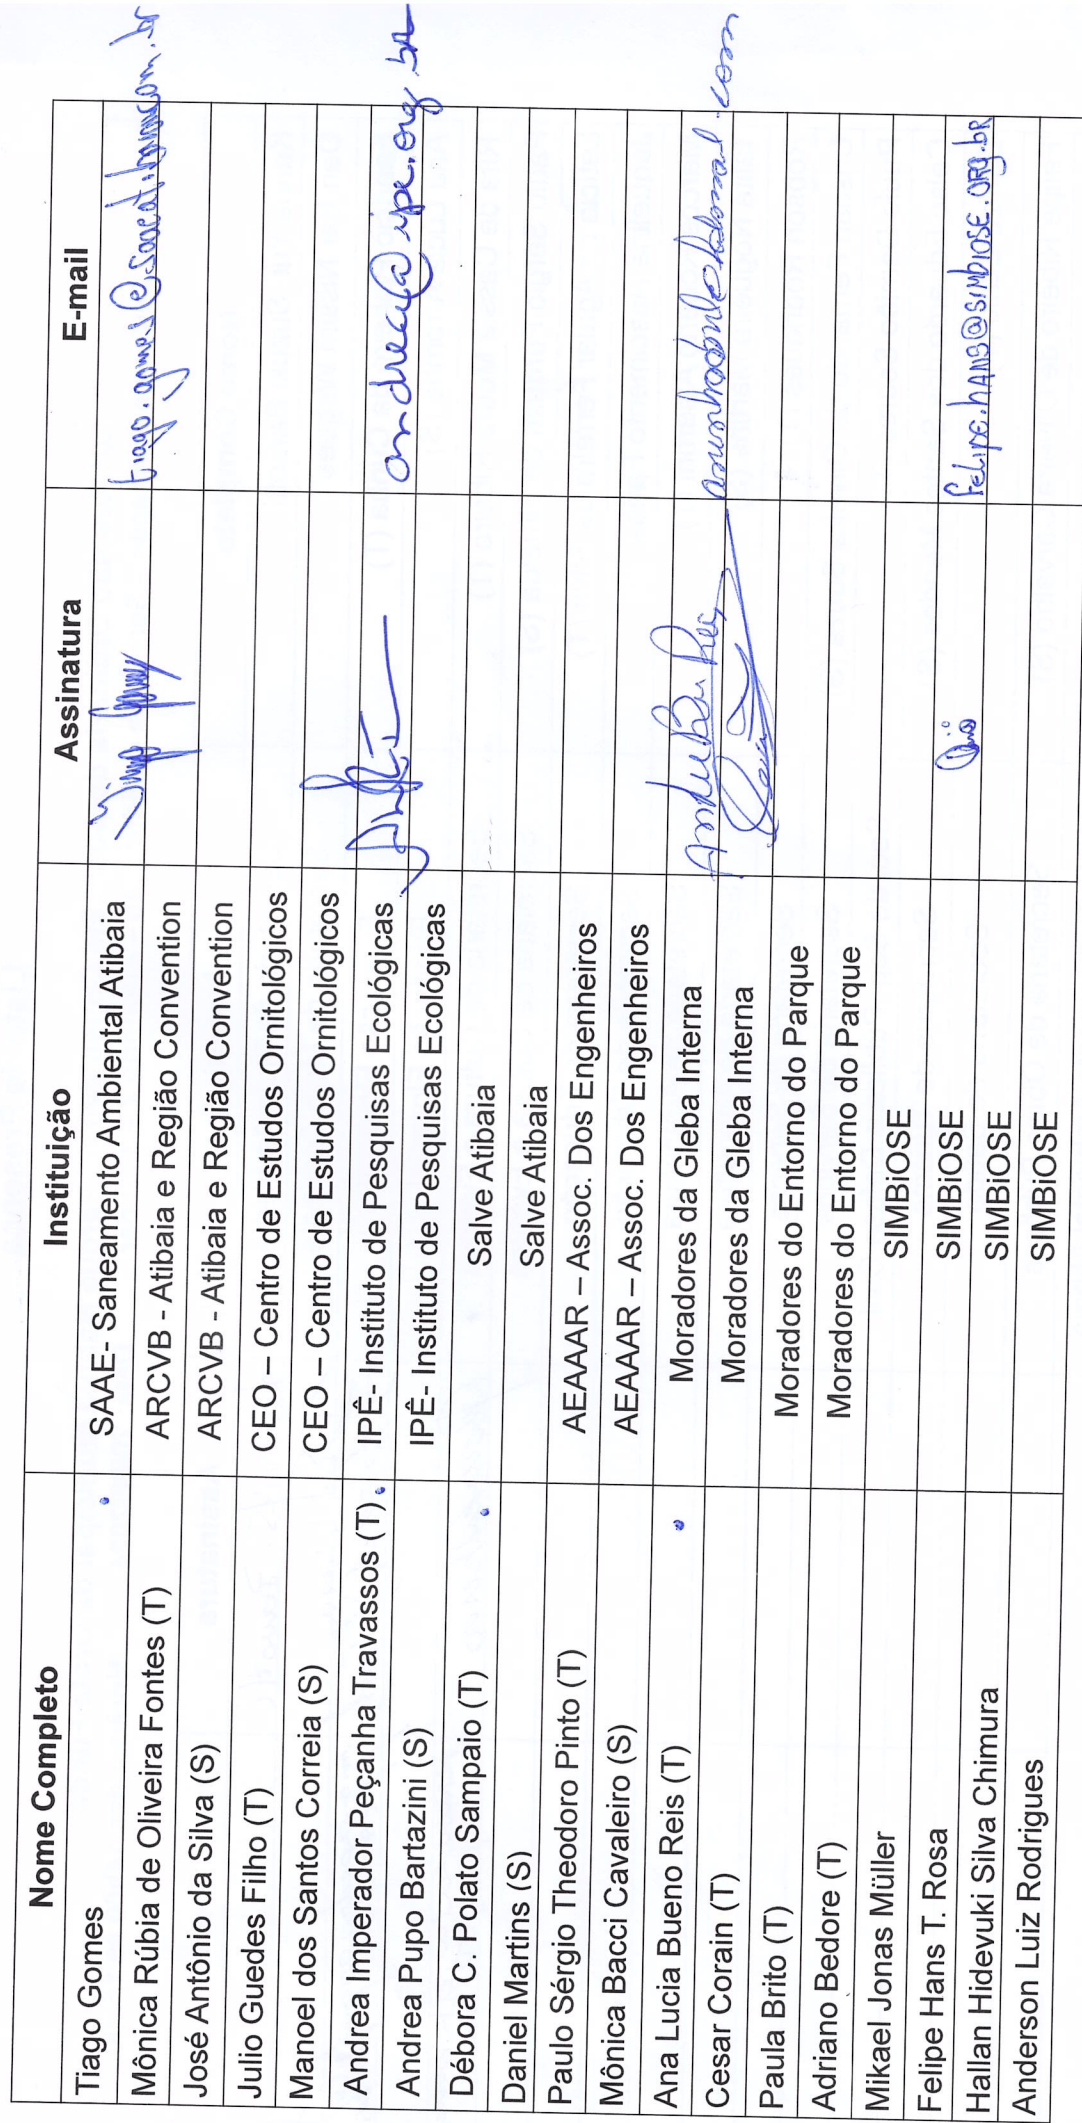 Nome Completo Instituição Assinatura E-mail
Tiago Gomes SAAE- Saneamento Ambiental Atibaia
Mônica Rúbia de Oliveira Fontes (T) ARCVB - Atibaia e Região Convention
José Antônio da Silva (S) ARCVB - Atibaia e Região Convention
Julio Guedes Filho (T) CEO – Centro de Estudos Ornitológicos
Manoel dos Santos Correia (S) CEO – Centro de Estudos Ornitológicos
Andrea Imperador Peçanha Travassos (T) IPÊ- Instituto de Pesquisas Ecológicas andrea@ipe.org.br
Andrea Pupo Bartazini (S) IPÊ- Instituto de Pesquisas Ecológicas
Débora C. Polato Sampaio (T) Salve Atibaia
Daniel Martins (S) Salve Atibaia
Paulo Sérgio Theodoro Pinto (T) AEAAAR – Assoc. Dos Engenheiros
Mônica Bacci Cavaleiro (S) AEAAAR – Assoc. Dos Engenheiros
Ana Lucia Bueno Reis (T) Moradores da Gleba Interna
Cesar Corain (T) Moradores da Gleba Interna
Paula Brito (T) Moradores do Entorno do Parque
Adriano Bedore (T) Moradores do Entorno do Parque
Mikael Jonas Müller SIMBiOSE
Felipe Hans T. Rosa SIMBiOSE felipe.hans@simbiose.org.br
Hallan Hidevuki Silva Chimura SIMBiOSE
Anderson Luiz Rodrigues SIMBiOSE